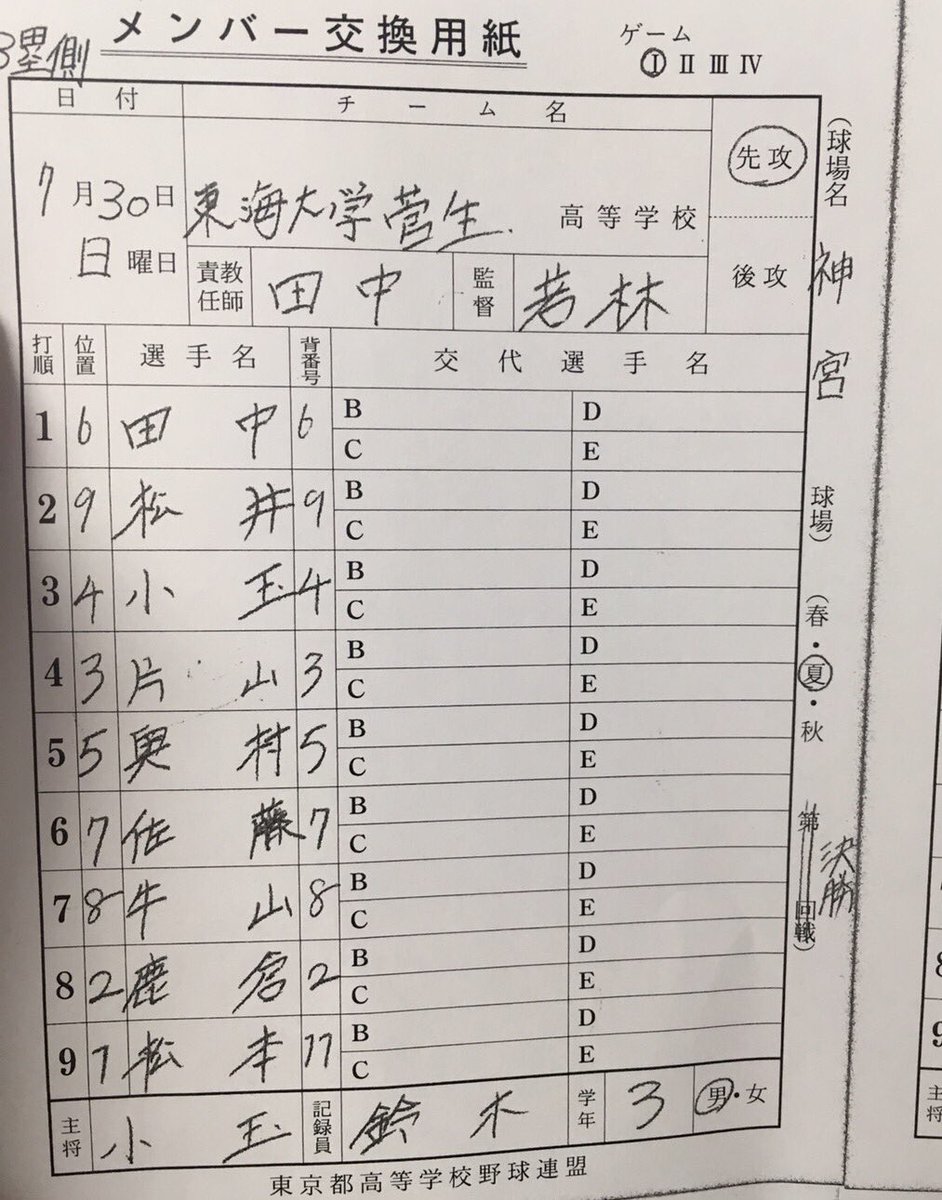 メンバー交換用紙
3塁側
ゲーム
Ⅰ Ⅱ Ⅲ Ⅳ
日付 チーム名
7月30日
日曜日
東海大学菅生 高等学校
先攻
後攻
責任教師 田中 監督 若林
(球場名 神宮 球場)
(春・夏・秋
第 回戦)
決勝
打順 位置 選手名 背番号 交代選手名
1 6 田中 6 B D
C E
2 9 松井 9 B D
C E
3 4 小玉 4 B D
C E
4 3 片山 3 B D
C E
5 5 奥村 5 B D
C E
6 7 佐藤 7 B D
C E
7 8 牛山 8 B D
C E
8 2 鹿倉 2 B D
C E
9 1 松本 11 B D
C E
主将 小玉 記録員 鈴木 学年 3 男・女
東京都高等学校野球連盟
8
9
主将